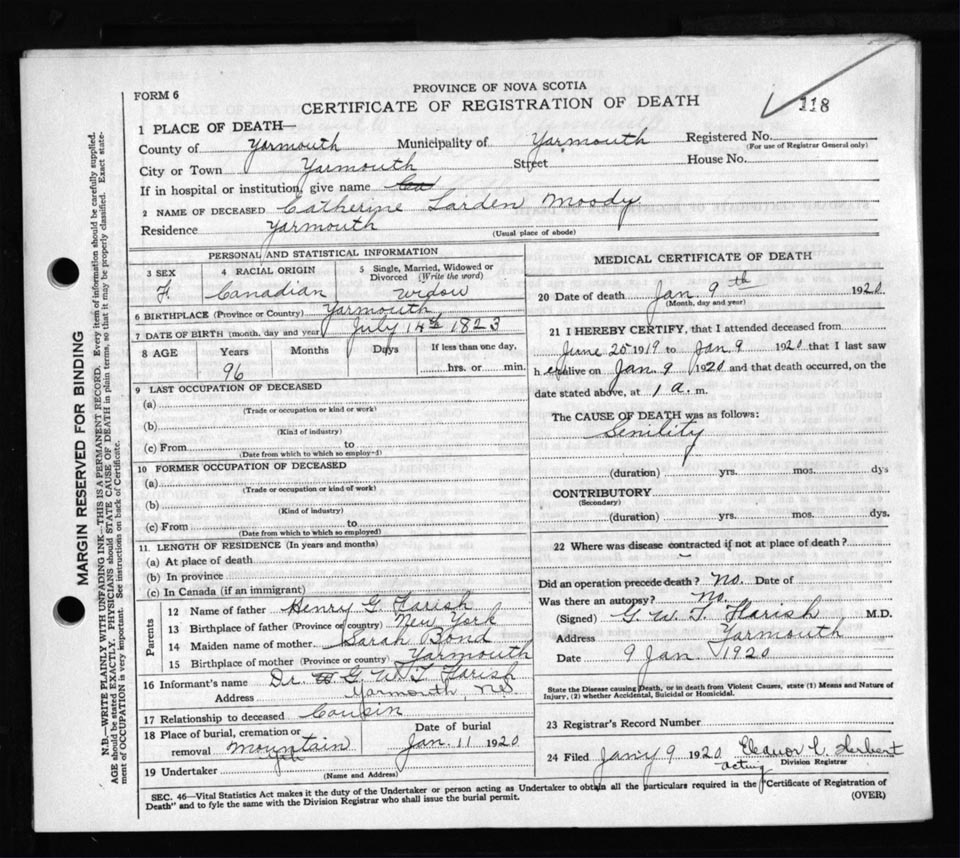 FORM 6
PROVINCE OF NOVA SCOTIA
CERTIFICATE OF REGISTRATION OF DEATH
118
1 PLACE OF DEATH—
County of Yarmouth Municipality of Yarmouth Registered No.
(For use of Registrar General only)
City or Town Yarmouth Street House No.
If in hospital or institution, give name Ca
2 NAME OF DECEASED Catherine Larden Moody
Residence Yarmouth
(Usual place of abode)
PERSONAL AND STATISTICAL INFORMATION
3 SEX 4 RACIAL ORIGIN 5 Single, Married, Widowed or Divorced (Write the word)
F. Canadian widow
6 BIRTHPLACE (Province or Country) Yarmouth
7 DATE OF BIRTH (month, day and year) July 14th 1823
8 AGE Years Months Days If less than one day,
96 hrs. or min.
9 LAST OCCUPATION OF DECEASED
(a)
(Trade or occupation or kind or work)
(b)
(Kind of industry)
(c) From to
(Date from which to which so employed)
10 FORMER OCCUPATION OF DECEASED
(a)
(Trade or occupation or kind of work)
(b)
(Kind of industry)
(c) From to
(Date from which to which so employed)
11. LENGTH OF RESIDENCE (In years and months)
(a) At place of death
(b) In province
(c) In Canada (if an immigrant)
Parents
12 Name of father Henry G. Farish
13 Birthplace of father (Province or country) New York
14 Maiden name of mother Sarah Bond
15 Birthplace of mother (Province or country) Yarmouth
16 Informant's name Dr. G W T Farish
Address Yarmouth, N.S.
17 Relationship to deceased Cousin
18 Place of burial, cremation or removal Mountain Date of burial
Jan. 11 1920
19 Undertaker
(Name and Address)
MEDICAL CERTIFICATE OF DEATH
20 Date of death Jan 9th 1920
(Month, day and year)
21 I HEREBY CERTIFY, that I attended deceased from
June 25 1919 to Jan 9 1920 that I last saw
her alive on Jan. 9 1920 and that death occurred, on the
date stated above, at 1 a. m.
The CAUSE OF DEATH was as follows:
Senility
(duration) yrs. mos. dys
CONTRIBUTORY
(Secondary)
(duration) yrs. mos. dys.
22 Where was disease contracted if not at place of death?
Did an operation precede death? No. Date of
Was there an autopsy? No.
(Signed) G. W. T. Farish M.D.
Address Yarmouth
Date 9 Jan. 1920
State the Disease causing Death, or in death from Violent Causes, state (1) Means and Nature of
Injury, (2) whether Accidental, Suicidal or Homicidal.
23 Registrar's Record Number
24 Filed Jany 9 1920 Eleanor C. Herbert
acting Division Registrar
SEC. 46—Vital Statistics Act makes it the duty of the Undertaker or person acting as Undertaker to obtain all the particulars required in the "Certificate of Registration of
Death" and to fyle the same with the Division Registrar who shall issue the burial permit.
(OVER)
MARGIN RESERVED FOR BINDING
N.B.—WRITE PLAINLY WITH UNFADING INK—THIS IS A PERMANENT RECORD. Every item of information should be carefully supplied.
AGE should be stated EXACTLY. PHYSICIANS should STATE CAUSE OF DEATH in plain terms, so that it may be properly classified. Exact statement of OCCUPATION is very important. See instructions on back of Certificate.